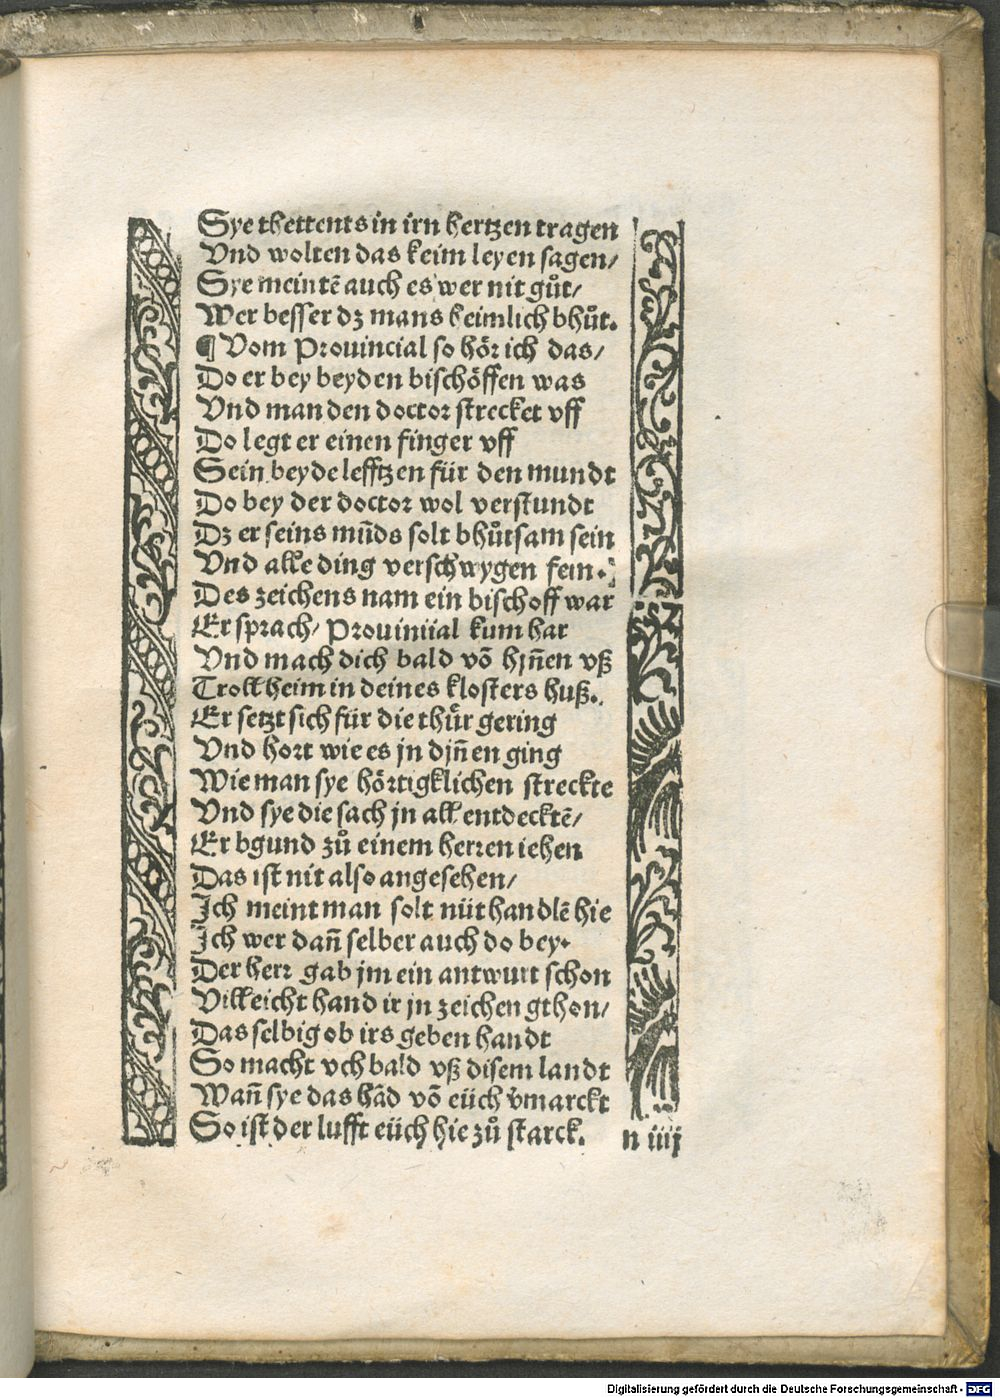 Sye thettents in irn hertzen tragen
Vnd wolten das keim leyen sagen/
Sye meintē auch es wer nit gůt/
Wer besser dz mans heimlich bhůt.
¶ Vom Prouincial so hör ich das/
Do er bey beyden bischöffen was
Vnd man den doctor strecket vff
Do legt er einen finger vff
Sein beyde lefftzen für den mundt
Do bey der doctor wol verstundt
Dz er seins mūds solt bhůtsam sein
Vnd alle ding verschwygen fein.
Des zeichens nam ein bischoff war
Er sprach/ Prouinitial kum har
Vnd mach dich bald vō hjn̄en vß
Troll heim in deines klosters huß.
Er setzt sich für die thůr gering
Vnd hort wie es jn djn̄en ging
Wie man sye hörtigklichen streckte
Vnd sye die sach jn all entdecktē/
Er bgund zů einem herren iehen
Das ist nit also angesehen/
Ich meint man solt nüt handlē hie
Ich wer dan̄ selber auch do bey.
Der herr gab jm ein antwurt schon
Villeicht hand ir jn zeichen gthon/
Das selbig ob irs geben handt
So macht vch bald vß disem landt
Wan̄ sye das hād vō eüch v̄marckt
So ist der lufft eüch hie zů starck.
n iiij
Digitalisierung gefördert durch die Deutsche Forschungsgemeinschaft - DFG